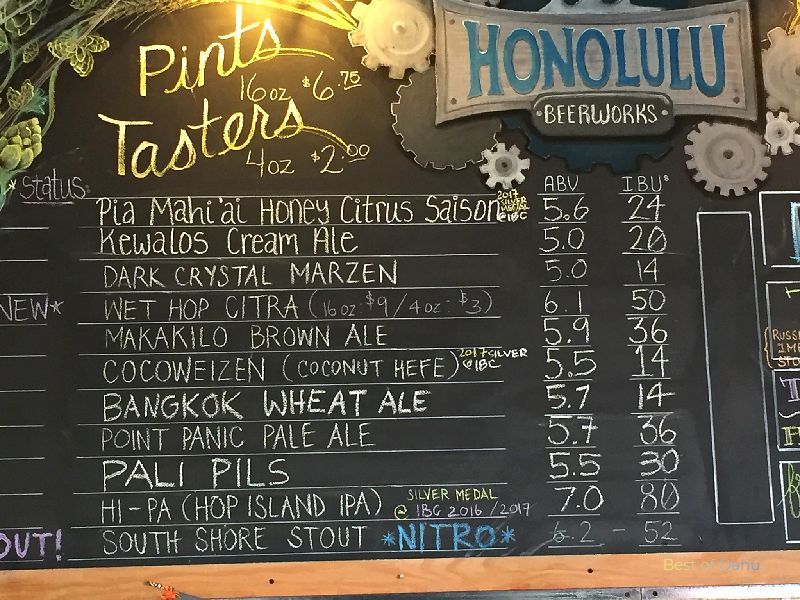 Pints
16oz $6.75
Tasters
4oz $2.00
HONOLULU
·BEERWORKS·
*Status* ABV IBU's
Pia Mahi'ai Honey Citrus Saison 2017 SILVER MEDAL @IBC 5.6 24
Kewalos Cream Ale 5.0 20
DARK CRYSTAL MARZEN 5.0 14
NEW* WET HOP CITRA (16oz: $9/4oz: $3) 6.1 50
MAKAKILO BROWN ALE 5.9 36
COCOWEIZEN (COCONUT HEFE) 2017 SILVER @IBC 5.5 14
BANGKOK WHEAT ALE 5.7 14
POINT PANIC PALE ALE 5.7 36
PALI PILS 5.5 30
HI-PA (HOP ISLAND IPA) SILVER MEDAL @ IBC 2016/2017 7.0 80
OUT! SOUTH SHORE STOUT *NITRO* 6.2 - 52
Best of Oahu